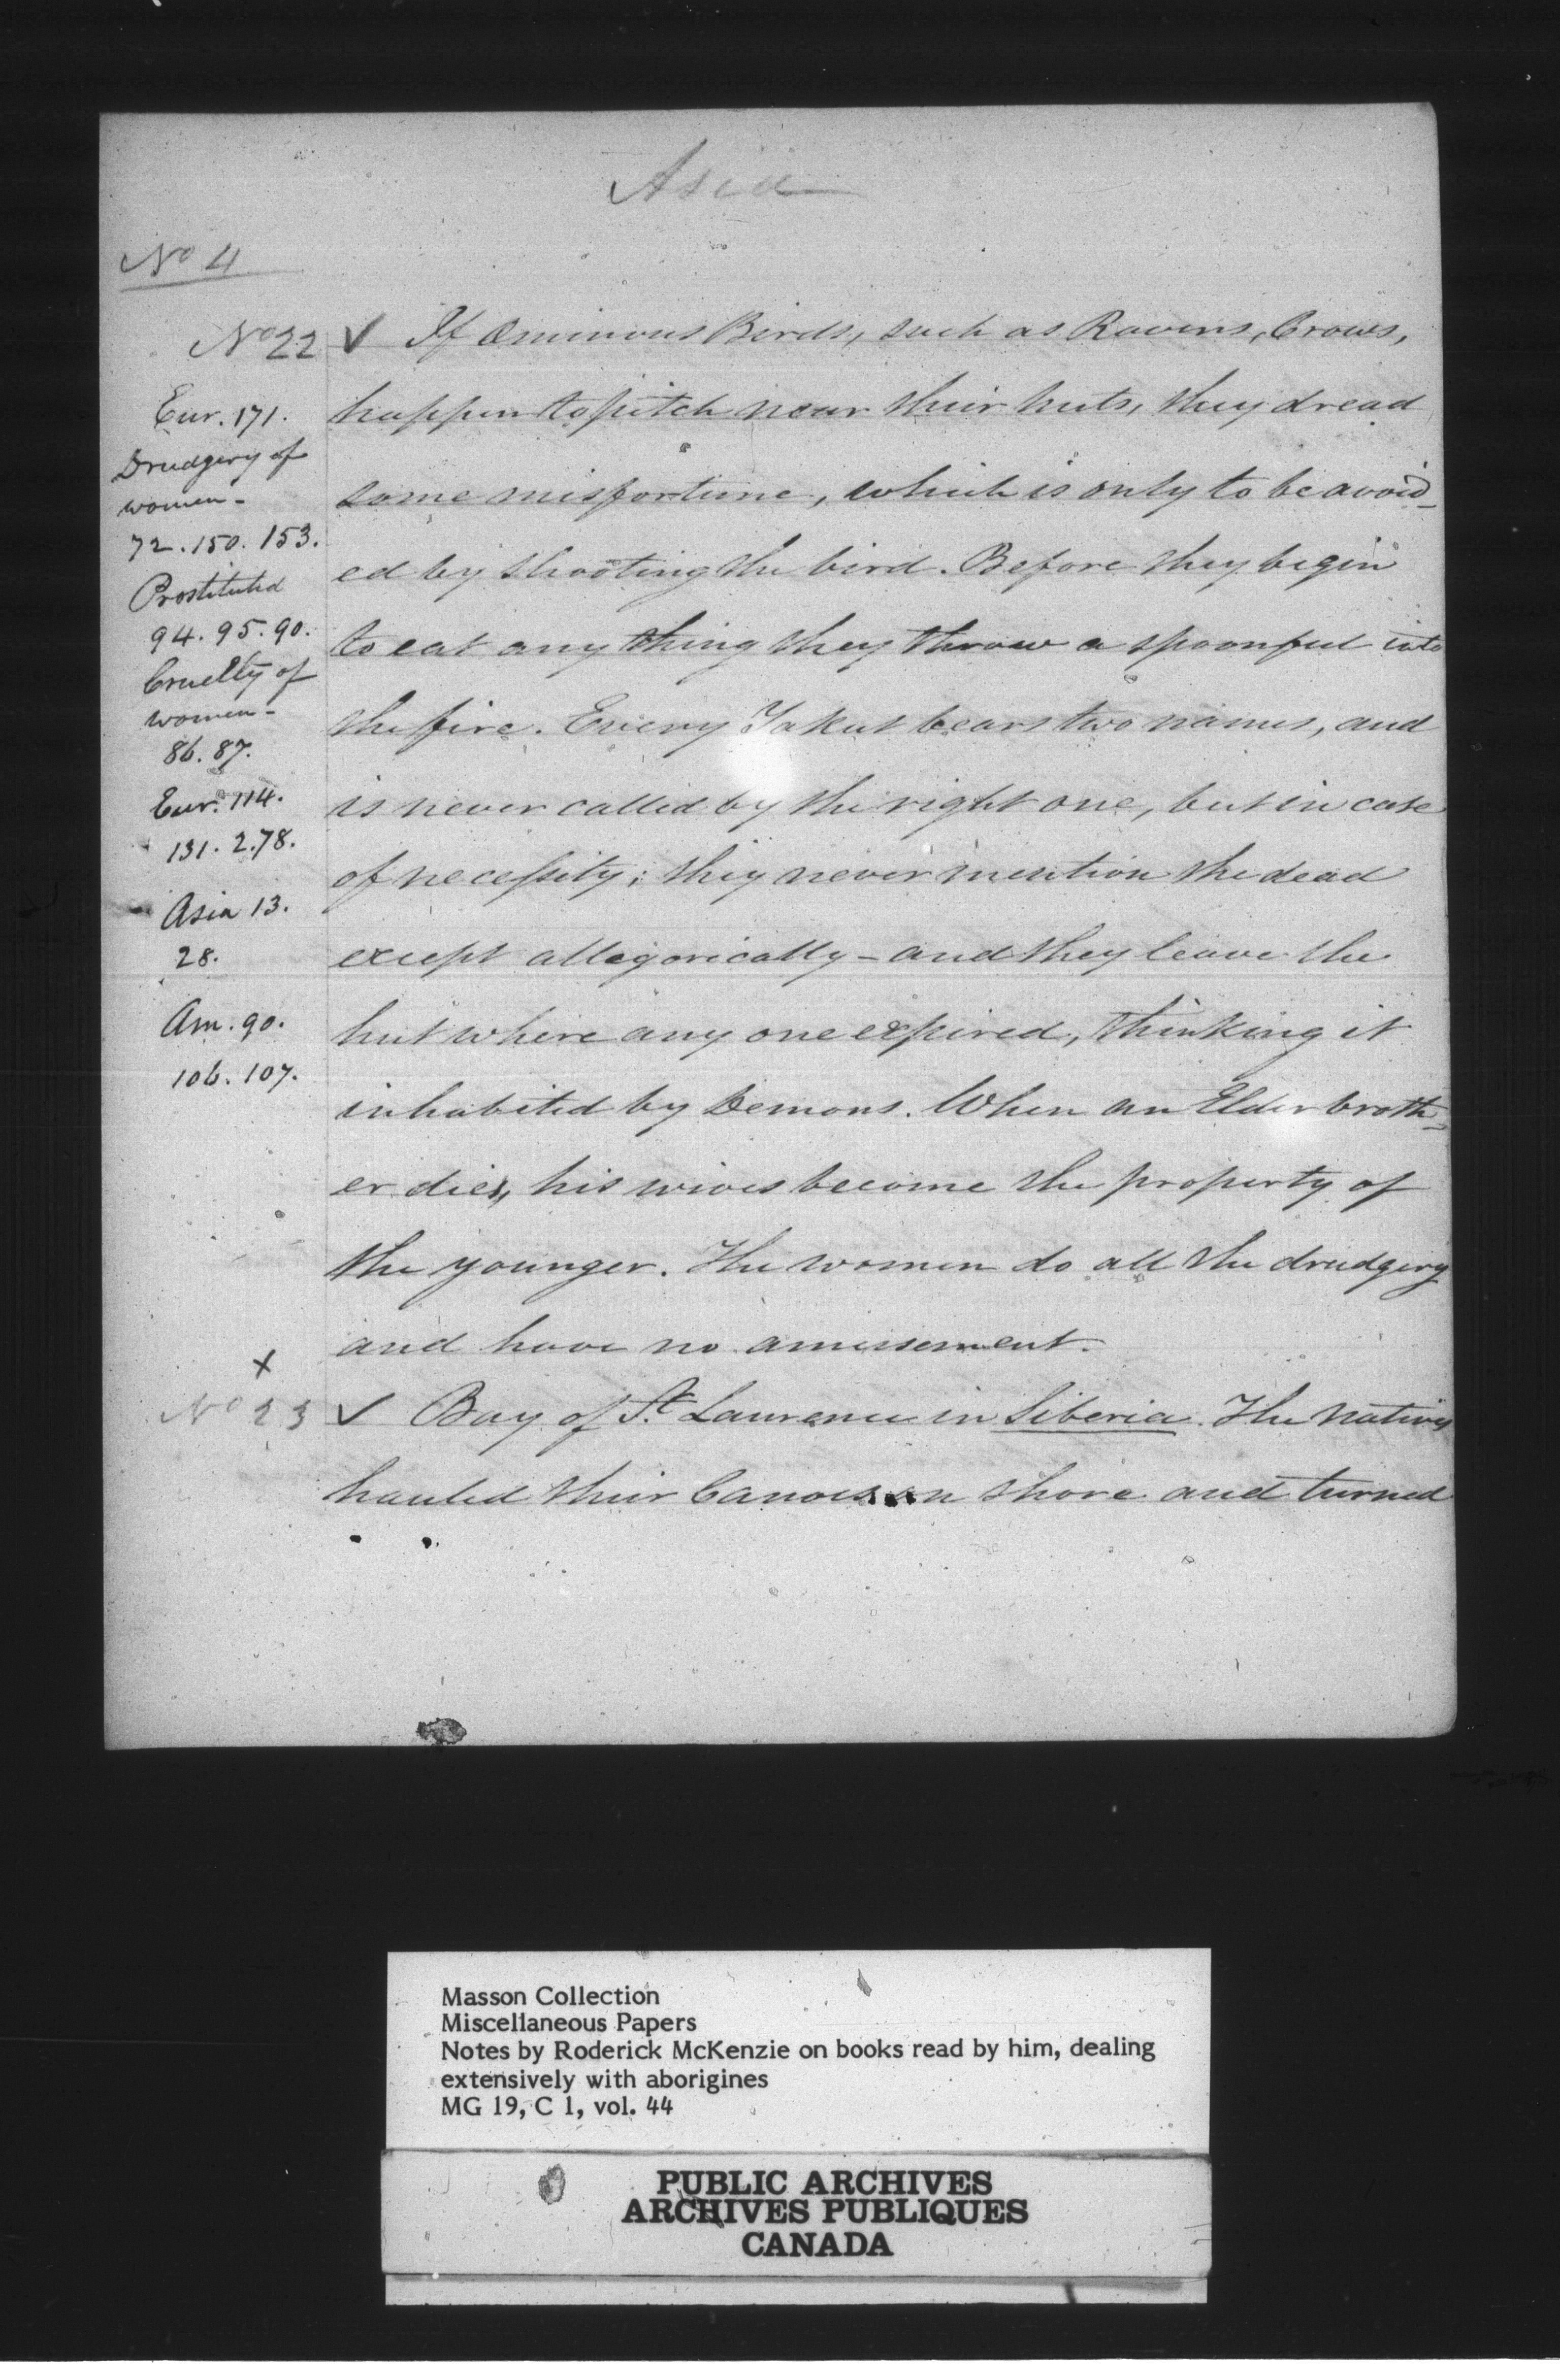 Asia
No 4
No 22
Eur. 171.
Drudgery of
women-
72. 150. 153.
Prostituted
94. 95. 90.
Cruelty of
women-
86. 87.
Eur. 114.
131. 2.78.
Asia 13.
28.
Am. 90.
106. 107.
✓ If Ominous Birds, such as Ravens, Crows,
happen to pitch near their huts, they dread
some misfortune, which is only to be avoid-
ed by shooting the bird. Before they begin
to eat any thing they throw a spoonful into
the fire. Every Yakut bears two names, and
is never called by the right one, but in case
of necessity; they never mention the dead
except allegorically - and they leave the
hut where any one expired, thinking it
inhabited by Demons. When an Elder broth-
er dies, his wives become the property of
the younger. The women do all the drudgery
and have no amusement.
x
No 23 ✓ Bay of St. Laurence in Siberia. The natives
hauled their Canoes on shore and turned
Masson Collection
Miscellaneous Papers
Notes by Roderick McKenzie on books read by him, dealing
extensively with aborigines
MG 19, C 1, vol. 44
PUBLIC ARCHIVES
ARCHIVES PUBLIQUES
CANADA